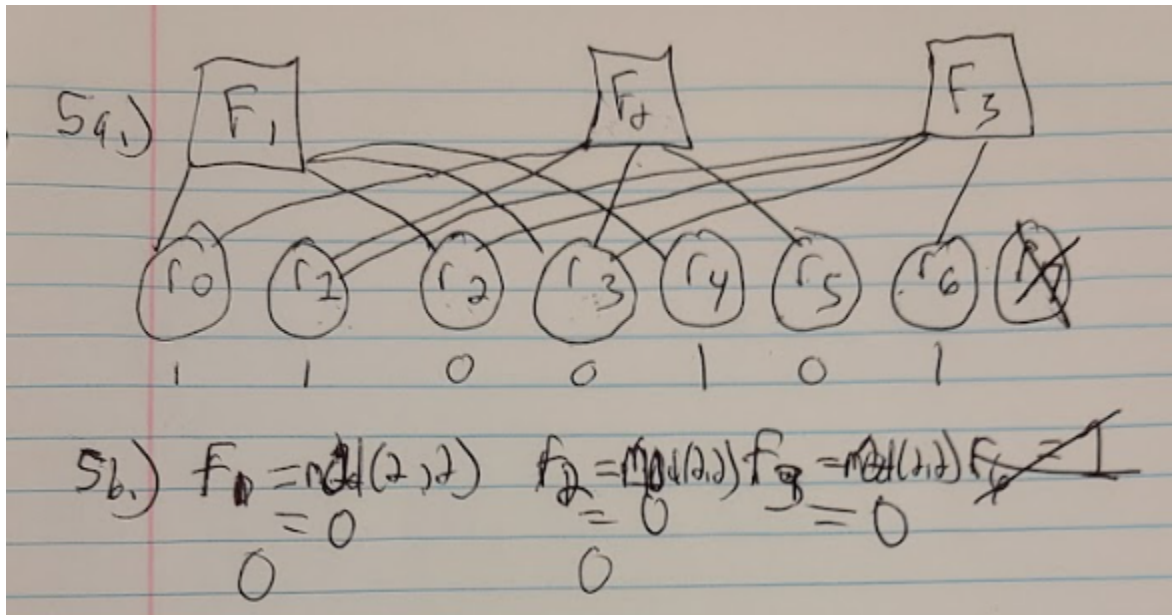 5a.) F1 F2 F3
r0 r1 r2 r3 r4 r5 r6
1 1 0 0 1 0 1
5b.) F1 = mod(2,2) F2 = mod(2,2) F3 = mod(2,2)
= 0 = 0 = 0
0 0